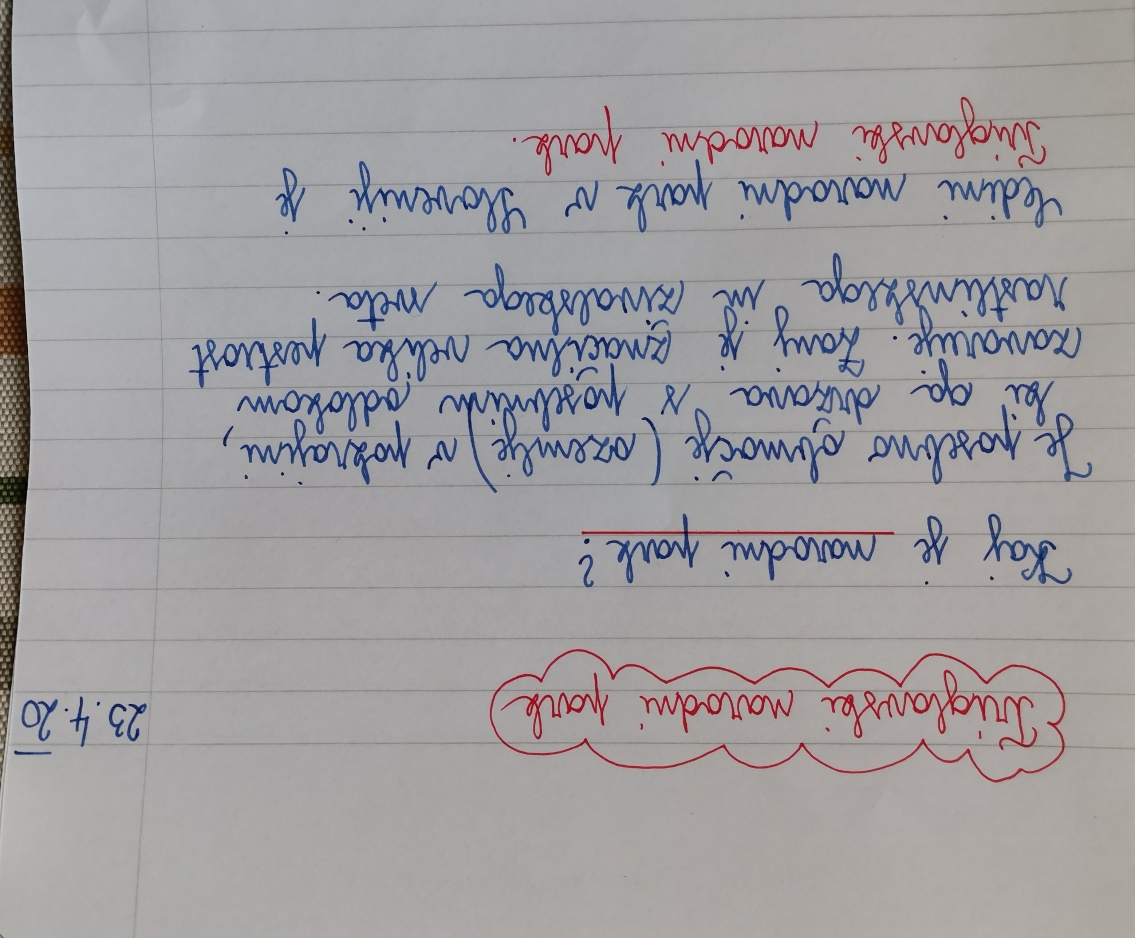 23.4.20
Triglavski narodni park
Kaj je narodni park?
Je posebno območje (ozemlje) v pokrajini,
ki ga država s posebnim odlokom
zavaruje. Zanj je značilna velika pestrost
rastlinskega in živalskega sveta.
Edini narodni park v Sloveniji je
Triglavski narodni park.